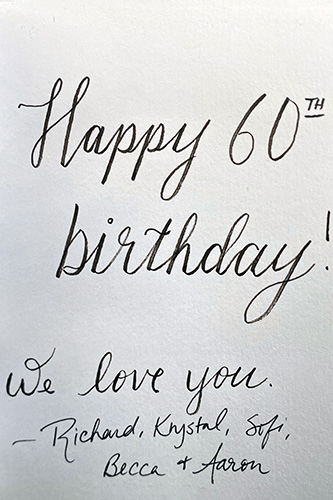 Happy 60TH
birthday!
We love you.
- Richard, Krystal, Sofi,
Becca + Aaron